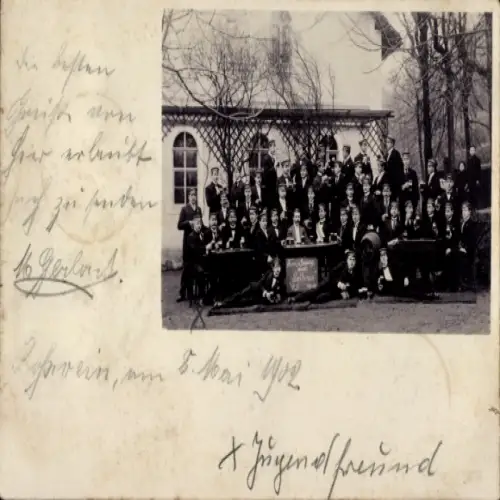 die besten
Grüße von
hier erlaubt
sich zu senden
M Gerlach.
am 5. Mai 1902
x Jugendfreund